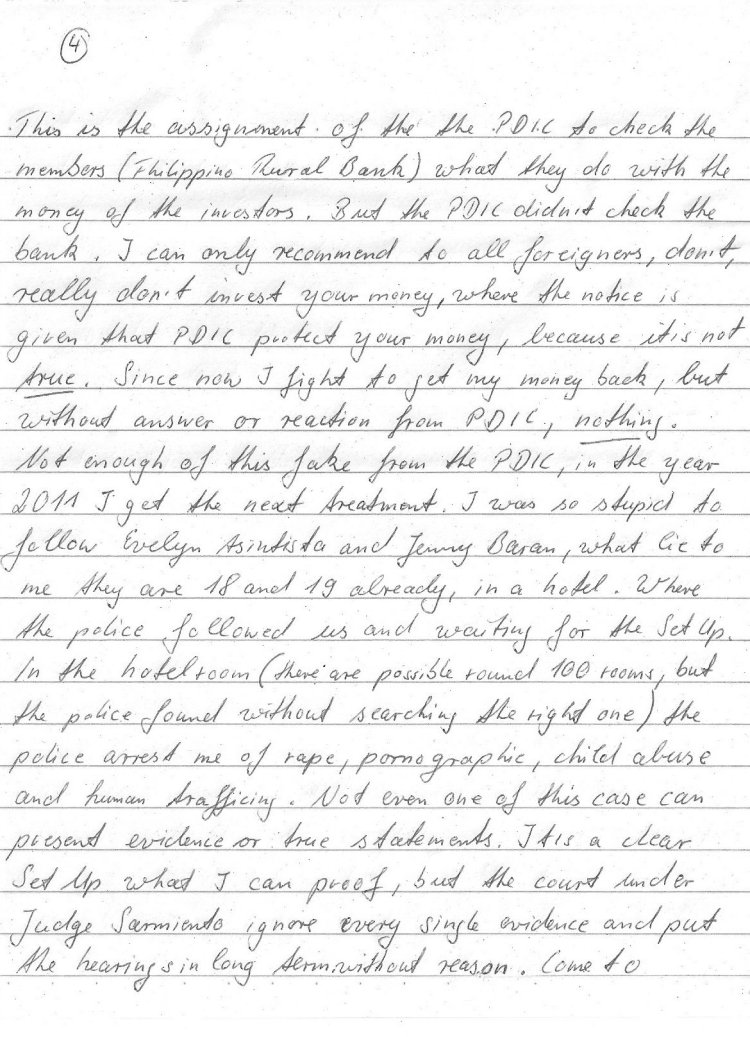 4
This is the assignment of the the PDIC to check the
members (Fhilippino Rural Bank) what they do with the
money of the investors. But the PDIC didn't check the
bank. I can only recommend to all foreigners, don't,
really don't invest your money, where the notice is
given that PDIC protect your money, because it is not
true. Since now I fight to get my money back, but
without answer or reaction from PDIC, nothing.
Not enough of this fake from the PDIC, in the year
2011 I get the next treatment. I was so stupid to
follow Evelyn Asintista and Jenny Baran, what lie to
me they are 18 and 19 already, in a hotel. Where
the police followed us and waiting for the Set Up.
In the hotelroom (there are possible round 100 rooms, but
the police found without searching the right one) the
police arrest me of rape, pornographic, child abuse
and human trafficing. Not even one of this case can
present evidence or true statements. It is a clear
Set Up what I can proof, but the court under
Judge Sarmiento ignore every single evidence and put
the hearings in long term. without reason. Come to